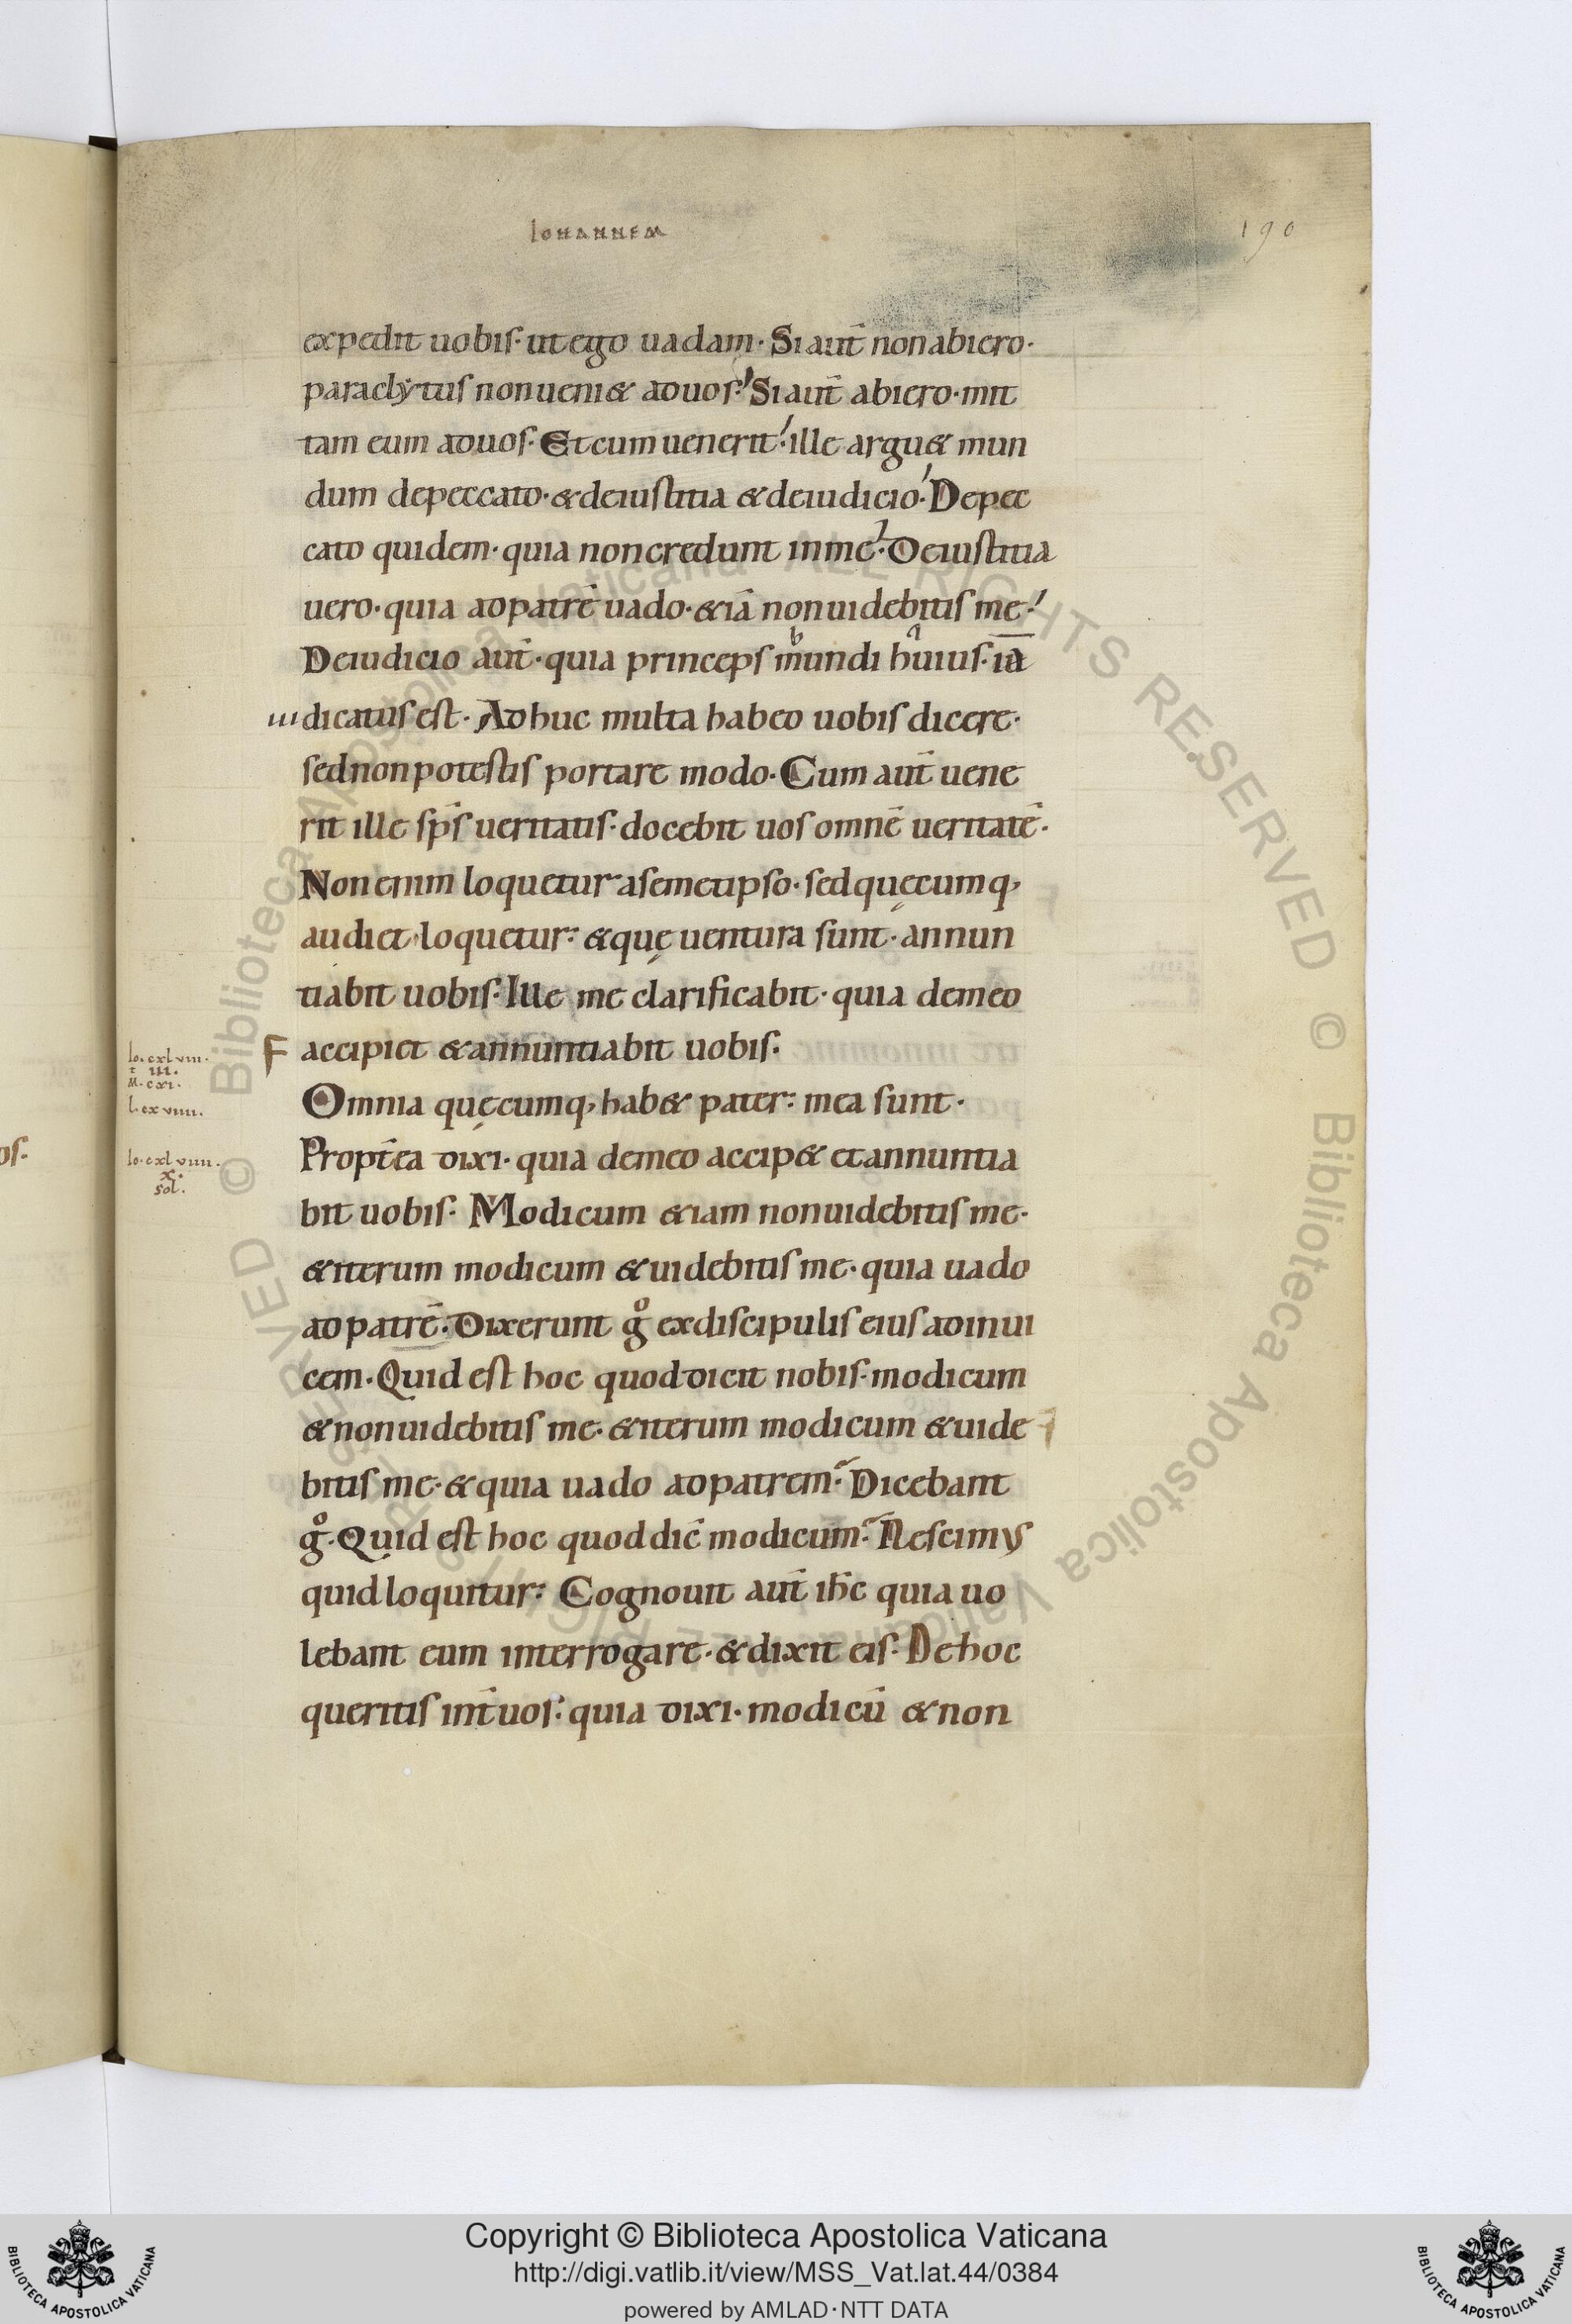 IOHANNEM
190
expedit uobis· ut ego uadam· Si aut̄ non abiero·
paraclytus non ueni& ad uos· Si aut̄ abiero· mit
tam eum ad uos· Et cum uenerit· ille argu& mun
dum de peccato· & de iustitia & de iudicio· De pec
cato quidem· quia non credunt in me· De iustitia
uero· quia ad patrē uado· & iā non uidebitis me·
De iudicio aut̄· quia princeps mundi huius· iā
iudicatus est· Ad huc multa habeo uobis dicere·
sed non potestis portare modo· Cum aut̄ uene
rit ille sp̄s ueritatis· docebit uos omnē ueritatē·
Non enim loquetur a semetipso· sed quęcumq,
audiet· loquetur: & quę uentura sunt· annun
tiabit uobis· Ille me clarificabit· quia de meo
F accipiet & annuntiabit uobis·
Omnia quęcumq, hab& pater: mea sunt·
Propt̄ea dixi· quia de meo accip& et annuntia
bit uobis· Modicum & iam non uidebitis me·
& iterum modicum & uidebitis me· quia uado
ad patrē· Dixerunt g̊ ex discipulis eius ad inui
cem· Quid est hoc quod dicit nobis· modicum
& non uidebitis me· & iterum modicum & uide
bitis me· & quia uado ad patrem· Dicebant
g̊· Quid est hoc quod dic̄ modicum· Nescimus
quid loquitur: Cognouit aut̄ ih̄c quia uo
lebant eum interrogare· & dixit eis· De hoc
queritis int̄ uos: quia dixi· modicū & non
Io. cxlviii.
t iii.
M. cxi.
L. cxviiii.
Io. cxlviiii.
x.
sol.
os·
Copyright © Biblioteca Apostolica Vaticana
http://digi.vatlib.it/view/MSS_Vat.lat.44/0384
powered by AMLAD·NTT DATA
BIBLIOTECA APOSTOLICA VATICANA
BIBLIOTECA APOSTOLICA VATICANA
© Biblioteca Apostolica Vaticana ALL RIGHTS RESERVED © Biblioteca Apostolica Vaticana ALL RIGHTS RESERVED